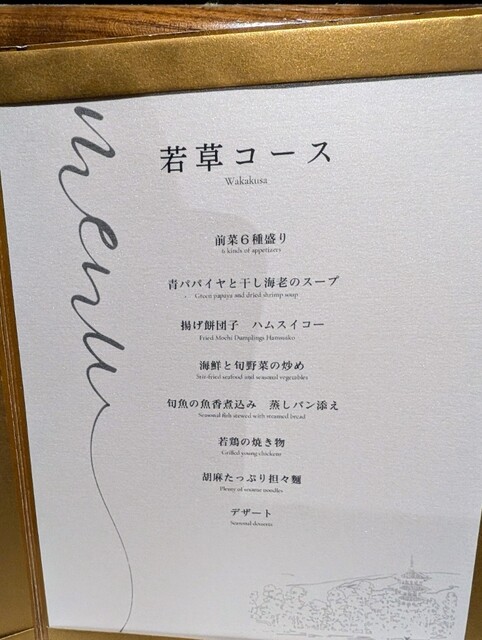 menu
若草コース
Wakakusa
前菜6種盛り
6 kinds of appetizers
青パパイヤと干し海老のスープ
Green papaya and dried shrimp soup
揚げ餅団子 ハムスイコー
Fried Mochi Dumplings Hamsuiko
海鮮と旬野菜の炒め
Stir-fried seafood and seasonal vegetables
旬魚の魚香煮込み 蒸しパン添え
Seasonal fish stewed with steamed bread
若鶏の焼き物
Grilled young chickens
胡麻たっぷり担々麺
Plenty of sesame noodles
デザート
Seasonal desserts